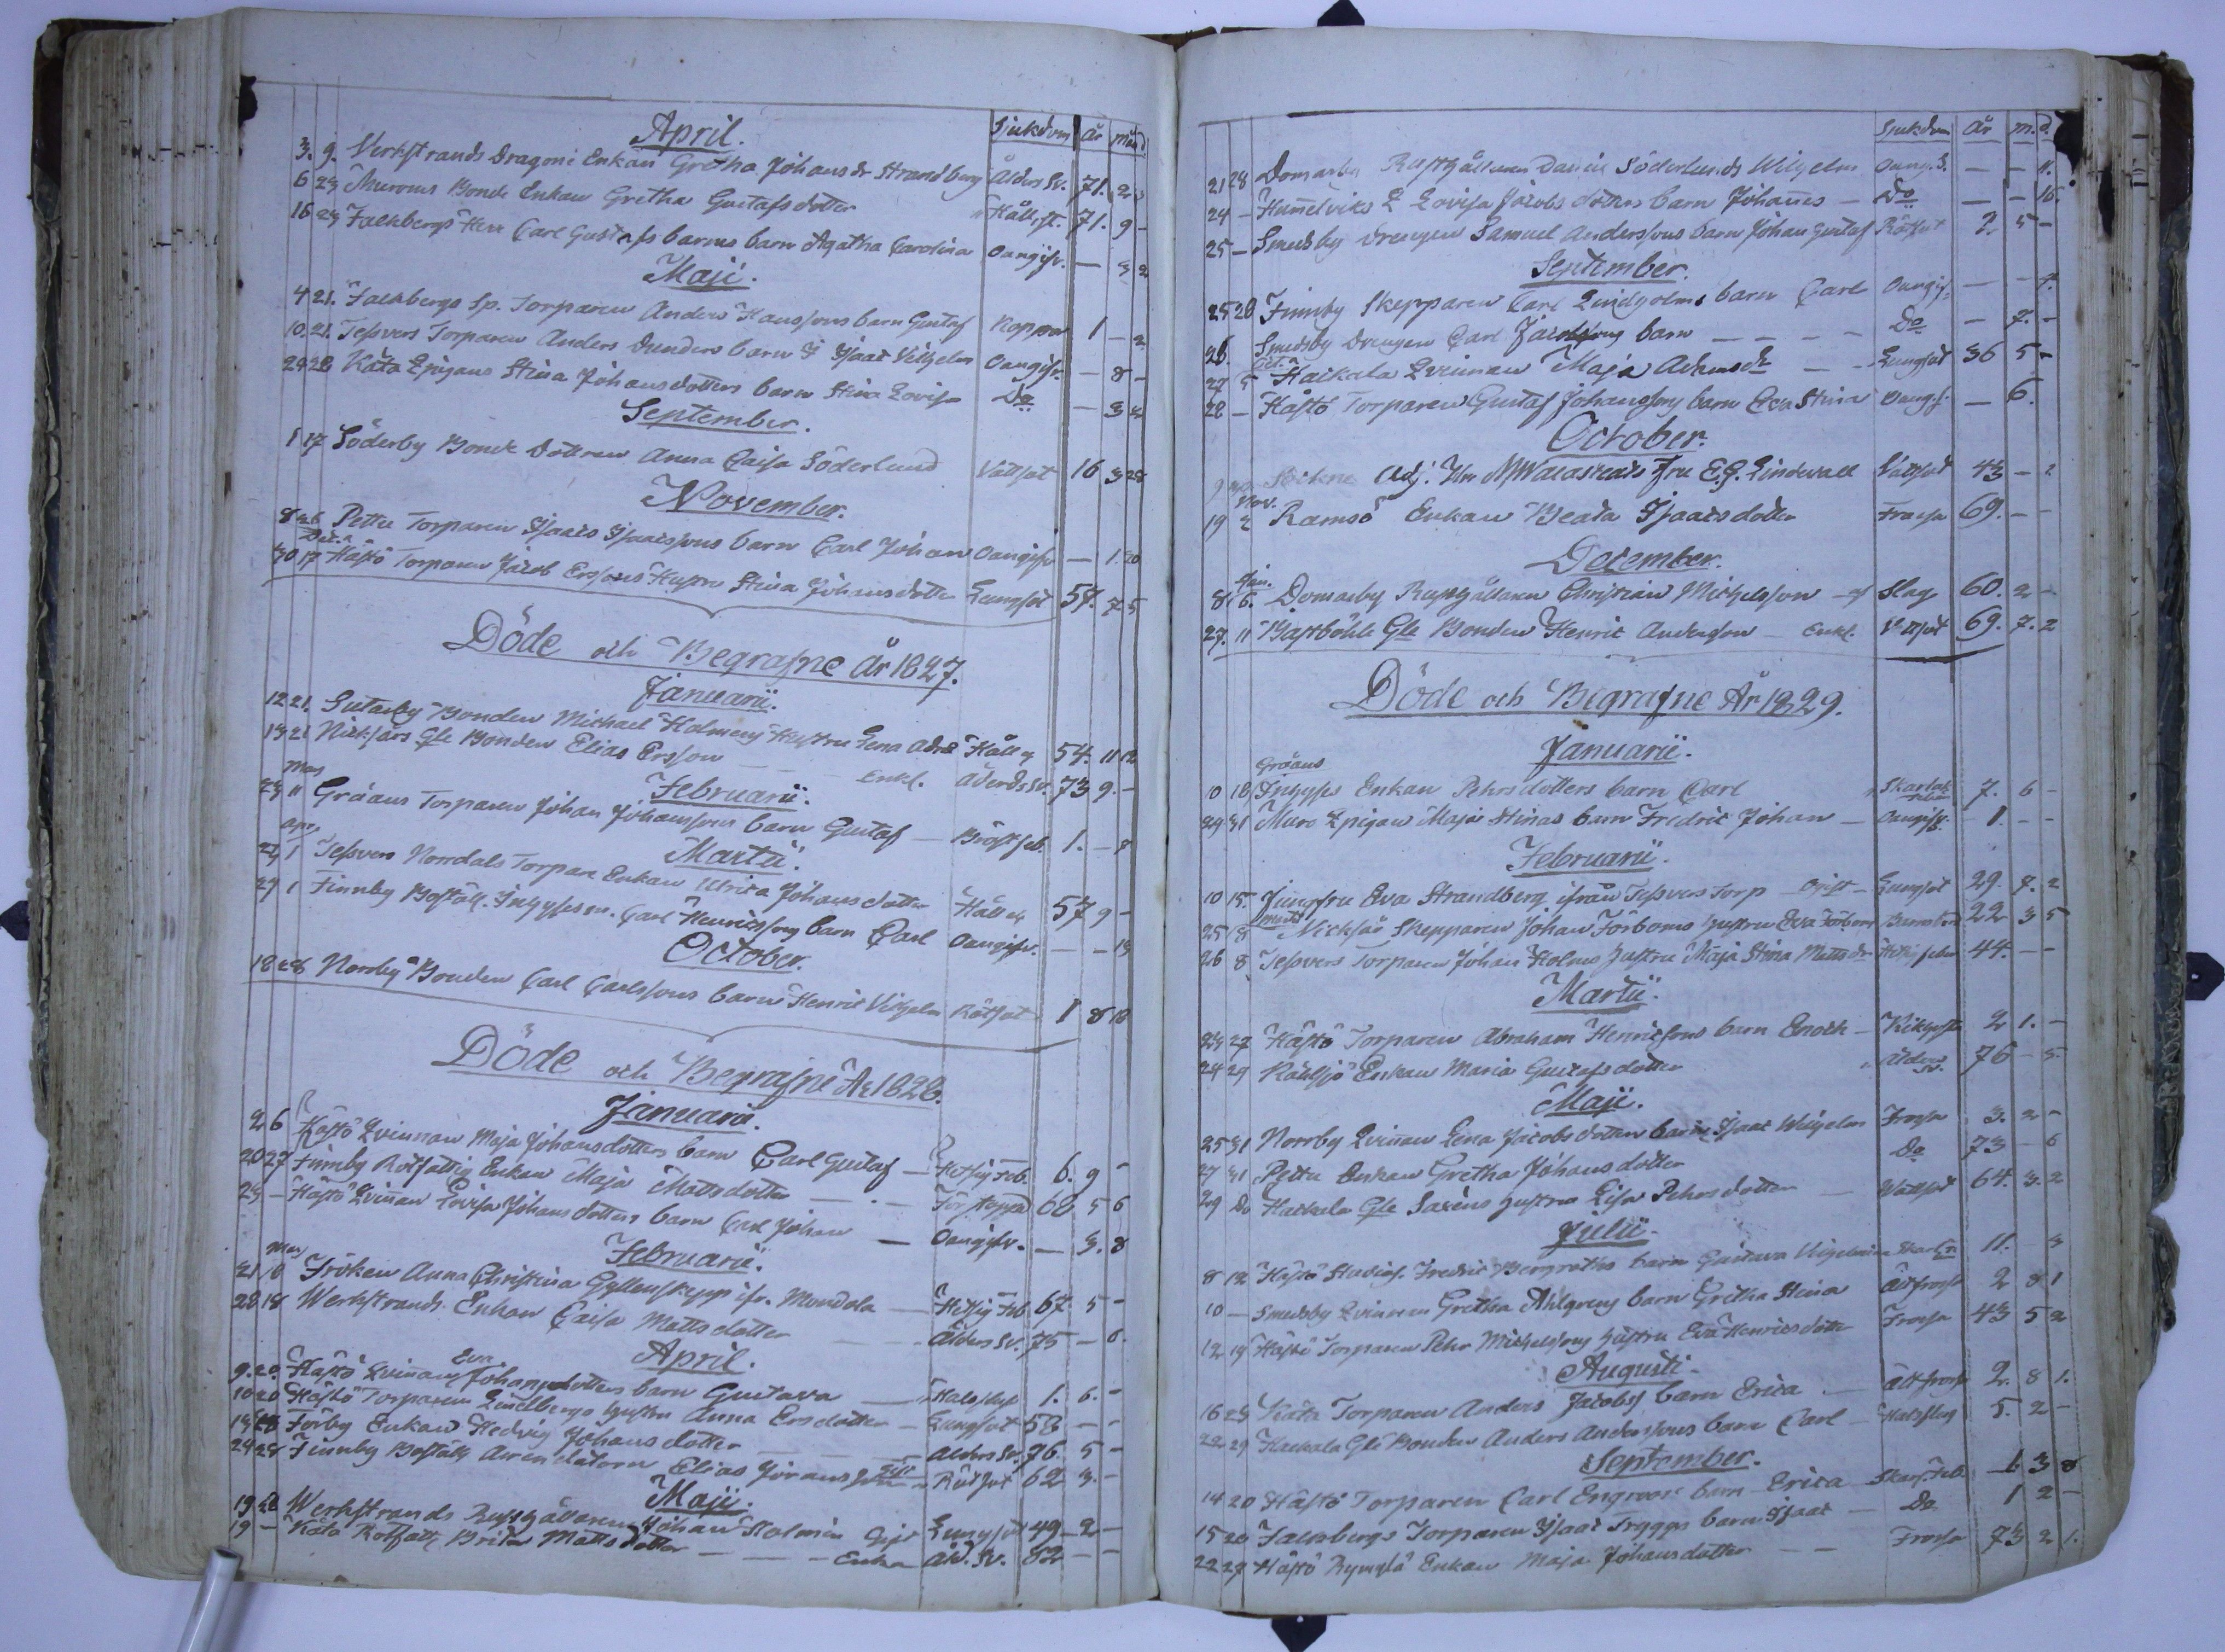 April.
Sjukdom År mån d.
3. 9. Verkstrands Dragoni Enkan Gretha Johans dr Strandberg Ålders Sv. 71. 2
6 23 Muroms Bonde Enkan Gretha Gustafsdotter Håll st. 71. 9 -
16 23 Falkbergs Herr Carl Gustafss barns barn Agatha Carolina Oangifv. - 3 2
Maji.
4 21. Falkbergs Sp. Torparen Anders Hanssons barn Gustaf Koppor 1 - 2
10. 21. Tessvers Torparen Anders Dunders barn Isaac Vilhelm Oangifv. - 8 -
24 28 Kåta Inhysis Stina Johansdotters barn Stina Lovisa Do - 3 2
September.
1 17 Söderby Bonde Dottren Anna Caisa Söderlund Vattsot 16 3 28
November.
8 26 Pettu Torparen Isaacs Isaacssons barn Carl Johan Oangifv - 1. 20
Dec.
30 17 Hästö Torparen Jacob Erssons Hustru Stina Johansdotter Lungsot 57. 7 5
Döde och Begrafne År 1827.
Januarii.
12 21. Sutarby Bonden Michael Holmens Hustru Lena Adrs Håll 54. 11 12
13 21 Nicksårs Gle Bonden Elias Ersson Enkl. Ålderds Sv. 73 9. -
Februarii.
Mars
23 11 Gråans Torparen Johan Johanssons barn Gustaf - Bröstfeb. 1. - 8
Martii.
Apr.
24 1 Tessvers Norrdals Torpare Enkan Ulrica Johansdotter Håll 57 9 -
27 1 Finnby Boställ. Inhyses m. Carl Henricssons barn Carl Oangifv. - - 13
October.
18 28 Norrby Bonden Carl Carlssons barn Henric Vilhelm Rötsot 1 8 18
Döde och Begrafne År 1828.
Januarii.
2 6 Hästö Qvinnan Maja Johansdotters barn Carl Gustaf - Hetsig Feb. 6. 9 -
20 27 Finnby Rotfattig Enkan Maja Mattsdotter - - Förstoppn 60 5 6
23 - Hästö Qvinnan Lovisa Johansdotters barn Carl Johan - Oangifv. - 3. 8
Februarii.
Mars
21 10 Fröken Anna Christina Gyllenskepp ifr. Mondola - Hetsig Feb 67. 5 -
28 18 Werkstrands Enkan Caisa Mattsdotter Ålders Sv. 75 - 6.
April.
9. 20. Hästö Qvinnans Eva Johansdotters barn Gustava - Halsfluss 1. 6. -
10 20 Hästö Torparen Lindbergs hustru Anna Ersdotter - Lungsot 58 - -
19 28 Förby Enkan Hedvig Johansdotter - - Ålders Sv. 76. 5 -
24 28 Finnby Boställs Arrendatorn Elias Göransson Gift Rötsot 62 3. -
Maji.
19 28 Werkstrands Rusthållaren Johan Holmén Gift Lungsot 49 - 2 -
19 - Kåta Rotfatt. Brita Mattsdotter - - - Enka Åld. Sv. 82 - -
Sjukdom År m. d.
21 28 Domarby Rusthållaren Daniel Söderlunds Wilhelm Oang.S. - - 11.
24 - Hummelviks Lovisa Jacobsdotters barn Johannes - Do - - 16.
25 - Smedsby Drengen Samuel Anderssons barn Johan Gustaf Rötsot 2 5 -
September.
25 28 Finnby Skepparen Carl Lindholms barn Carl Oangif. - - 4.
26. Smedsby Drengen Carl Jacobssons barn - - - - Do - 7. -
Oct.
27 5 Haikala Qvinnan Maja Adamsdr - - Lungsot 36 5 -
28 - Hästö Torparen Gustaf Johanssons barn Eva Stina Oangf. - 6.
October.
Sockne Adj. Hr M Walastedts Fru E. G. Lindwall Vattsot 43 - 2
Nov.
19 2 Ramsö Enkan Beata Isaacsdotter Frossa 69. - -
December.
Jan.
8 6. Domarby Rusthållaren Christian Michelsson - af Slag 60. 2 -
27. 11 Bastböhle Gle Bonden Henric Andersson - Enkl. Vattsot 69. 7. 2
Döde och Begrafne År 1829.
Januarii.
Gråans
10 18 Inhyses Enkan Pehrsdotters barn Carl Skarlak. feber 7. 6 -
24 31 Muro Inhysis Maja Stinas barn Fredric Johan - Oangifv. - 1. - -
Februarii.
10 15. Jungfru Eva Strandberg ifrån Tessvers Torp - Ogift - Lungsot 29. 7. 2
Martii
25 8 Nicksår Skepparen Johan Förboms hustru Eva Barnsbörd 22 3 5
26 8 Tessvers Torparen Johan Holms hustru Maja Stina Mattsdr Hets. feber 44. - -
Martii.
23 27 Hästö Torparen Abraham Henricssons barn Enoch - Kikhosta 2 1. -
24 29 Kålsjö Enkan Maria Gustafsdotter Ålders sv. 76 - 5.
Maji.
25 31 Norrby Qvinnan Lena Jacobsdotters barn Isaac Wilhelm Frossa 3. 2 -
27 31 Pettu Enkan Gretha Johansdotter Do 73 - 6
29 Do Haikala Gle Saxéns hustru Lisa Pehrsdotter - Wattsot 64. 3. 2
Julii.
8 12 Hästö Fredric Bergroths barn Gustava Vilhelmina Skarl. 11. - 3
10 - Smedsby Qvinnan Gretha Ahlgrens barn Gretha Stina Ältfrossa 2 8 1
12 19 Hästö Torparen Pehr Michelssons hustru Eva Henricsdotter Frossa 43 5 2
Augusti.
16 23 Kåta Torparen Anders Jacobss barn Erica - Ältfrossa 2. 8 1.
22 29 Haikala Gle Bonden Anders Anderssons barn Carl - Halsfluss 5. 2 -
September.
14 20 Hästö Torparen Carl Engroos barn Erica - Skarl.Feb. 1. 3 8
15 20 Falkbergs Torparen Isaac Tryggs barn Isaac - Do 1 2 -
22 27 Hästö Rymglä Enkan Maja Johansdotter - - Frossa 73 2 1.